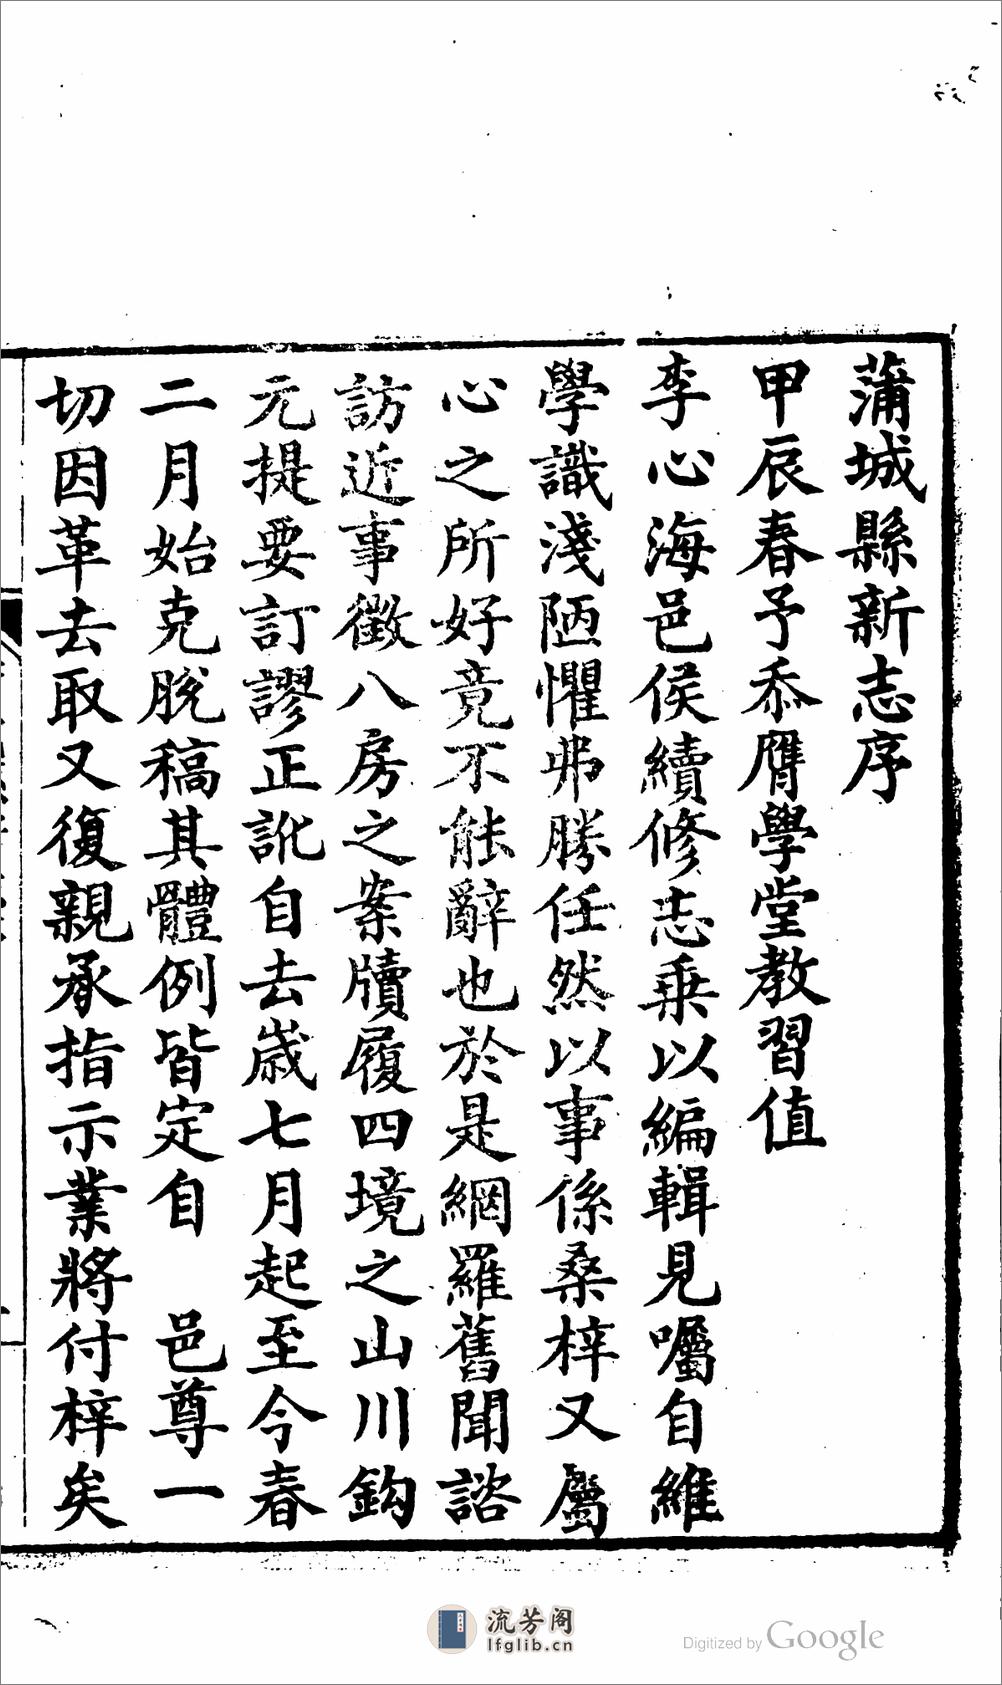 蒲城縣新志序
甲辰春予忝膺學堂教習值
李心海邑侯續修志乘以編輯見囑自維
學識淺陋懼弗勝任然以事係桑梓又屬
心之所好竟不能辭也於是網羅舊聞諮
訪近事徵八房之案牘履四境之山川鈎
元提要訂謬正訛自去歲七月起至今春
二月始克脫稿其體例皆定自　邑尊一
切因革去取又復親承指示業將付梓矣
流芳阁
lfglib.cn
Digitized by Google